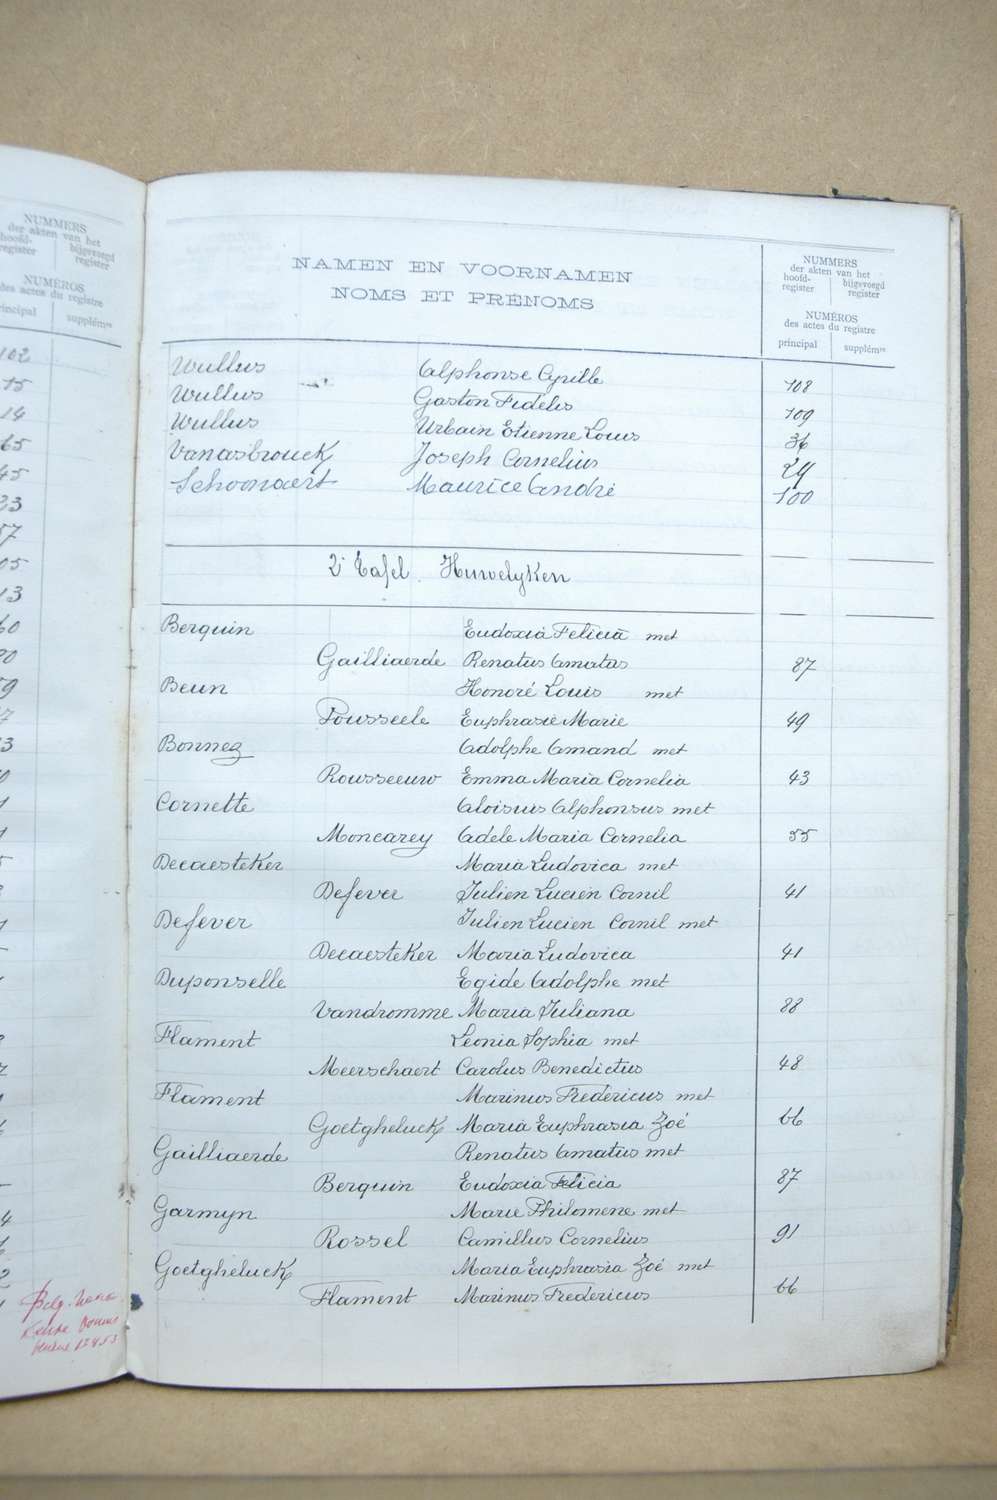 NUMMERS
der akten van het
hoofd-
register
bijgevoegd
register
NUMÉROS
des actes du registre
principal supplémre
102
15
14
65
45
23
57
05
13
60
NAMEN EN VOORNAMEN
NOMS ET PRÉNOMS
NUMMERS
der akten van het
hoofd-
register
bijgevoegd
register
NUMÉROS
des actes du registre
principal supplémre
Wullus Alphonse Cyrille 108
Wullus Gaston Fidelis 109
Wullus Urbain Etienne Louis 36
Vanasbrouck Joseph Cornelius 24
Schoonaert Maurice André 100
2e Tafel. Huwelyken
Berquin Eudoxia Felicia met
Gailliaerde Renatus Amatus 87
Beun Honoré Louis met
Pousseele Euphrasie Marie 49
Bonnez Adolphe Amand met
Rousseeuw Emma Maria Cornelia 43
Cornette Aloisius Alphonsus met
Moncarey Adele Maria Cornelia 55
Decaesteker Maria Ludovica met
Defever Julien Lucien Cornil 41
Defever Julien Lucien Cornil met
Decaesteker Maria Ludovica 41
Duponselle Egide Adolphe met
Vandromme Maria Juliana 88
Flament Leonia Sophia met
Meerschaert Carolus Benedictus 48
Flament Marinus Fredericus met
Goetgheluck Maria Euphrasia Zoé 66
Gailliaerde Renatus Amatus met
Berquin Eudoxia Felicia 87
Garmyn Marie Philomene met
Rossel Camillus Cornelius 91
Goetgheluck Maria Euphrasia Zoé met
Flament Marinus Fredericus 66